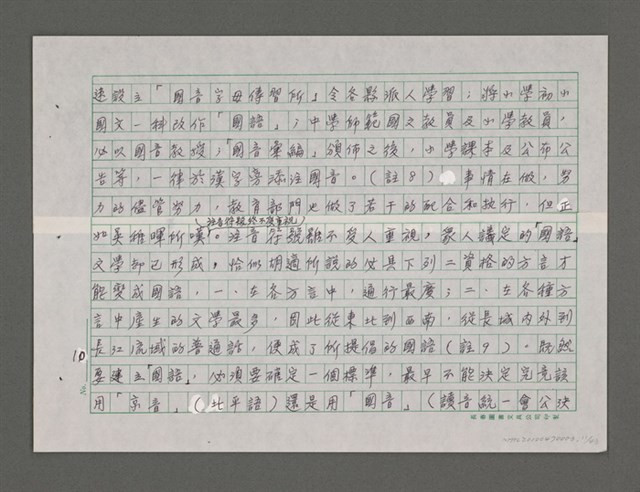 遠設立「國音字母傳習所」令各縣派人學習；將小學初小
國文一科改作「國語」；中學師範國文教員及小學教員，
必以國音教授；「國音彙編」頒佈之後，小學課本及公布公
告等，一律於漢字旁添注國音。（註8）事情在做，努
力的儘管努力，教育部門也做了若干的配合和執行，但正
（注音符號終不受重視）
如吳稚暉所嘆。注音符號雖不受人重視，眾人議定的「國語」
文學卻已形成，恰似胡適所說的必具下列二資格的方言才
能變成國語，一、在各方言中，通行最廣；二、在各種方
言中產生的文學最多，因此從東北到西南，從長城內外到
長江流域的普通話，便成了所提倡的國語（註9）。既然
要建立「國語」，必須要確定一個標準，最早不能決定究竟該
用「京音」（北平語）還是用「國音」（讀音統一會公決
10